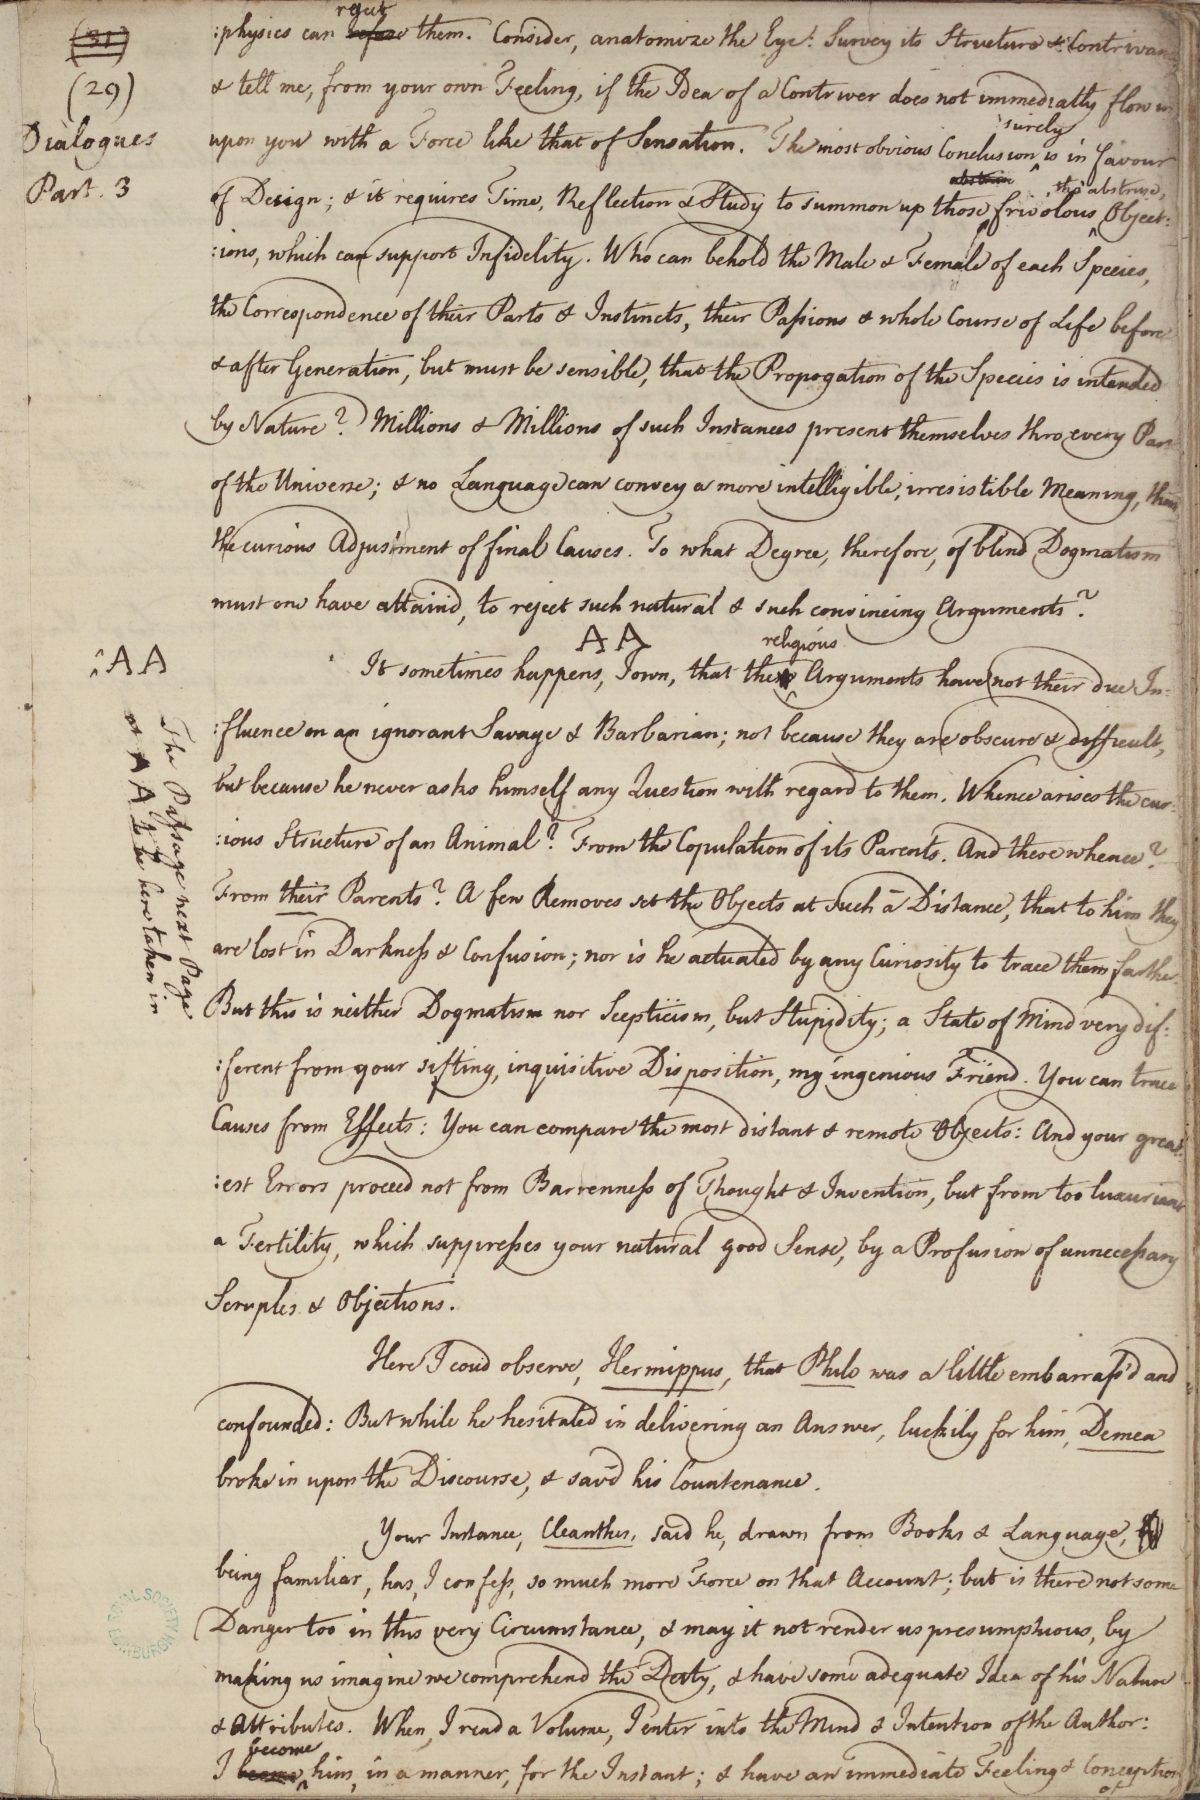 (31)
(29)
Dialogues
Part. 3
:physics can refute them. Consider, anatomize the Eye: Survey its Structure & Contrivance
& tell me, from your own Feeling, if the Idea of a Contriver does not immediatly flow in
upon you with a Force like that of Sensation. The most obvious Conclusion surely is in favour
of Design; & it requires Time, Reflection & Study to summon up those frivolous, tho abstruse, Object:
:ions, which can support Infidelity. Who can behold the Male & Female of each Species,
the Correspondence of their Parts & Instincts, their Passions & whole Course of Life before
& after Generation, but must be sensible, that the Propogation of the Species is intended
by Nature? Millions & Millions of such Instances present themselves thro every Part
of the Universe; & no Language can convey a more intelligible, irresistible Meaning, than
the curious Adjustment of final Causes. To what Degree, therefore, of blind Dogmatism
must one have attaind, to reject such natural & such convincing Arguments?
:AA
AA
It sometimes happens, I own, that the religious Arguments have not their due In:
:fluence on an ignorant Savage & Barbarian; not because they are obscure & difficult,
but because he never asks himself any Question with regard to them. Whence arises the cur:
:ious Structure of an Animal? From the Copulation of its Parents. And these whence?
From their Parents? A few Removes set the Objects at such a Distance, that to him they
are lost in Darkness & Confusion; nor is he actuated by any Curiosity to trace them farther.
But this is neither Dogmatism nor Scepticism, but Stupidity; a State of Mind very dif:
:ferent from your sifting, inquisitive Disposition, my ingenious Friend. You can trace
Causes from Effects: You can compare the most distant & remote Objects: And your great:
:est Errors proceed not from Barrenness of Thought & Invention, but from too luxuriant
a Fertility, which suppresses your natural good Sense, by a Profusion of unnecessary
Scruples & Objections.
The Passage next Page
at AA to be here taken in
Here I coud observe, Hermippus, that Philo was a little embarrass'd and
confounded: But while he hesitated in delivering an Answer, luckily for him, Demea
broke in upon the Discourse, & sav'd his Countenance.
Your Instance, Cleanthes, said he, drawn from Books & Language,
being familiar, has, I confess, so much more Force on that Account; but is there not some
Danger too in this very Circumstance, & may it not render us presumptuous, by
making us imagine we comprehend the Deity, & have some adequate Idea of his Nature
& Attributes. When I read a Volume, I enter into the Mind & Intention of the Author:
I become him, in a manner, for the Instant; & have an immediate Feeling & Conception
of
ROYAL SOCIETY
EDINBURGH